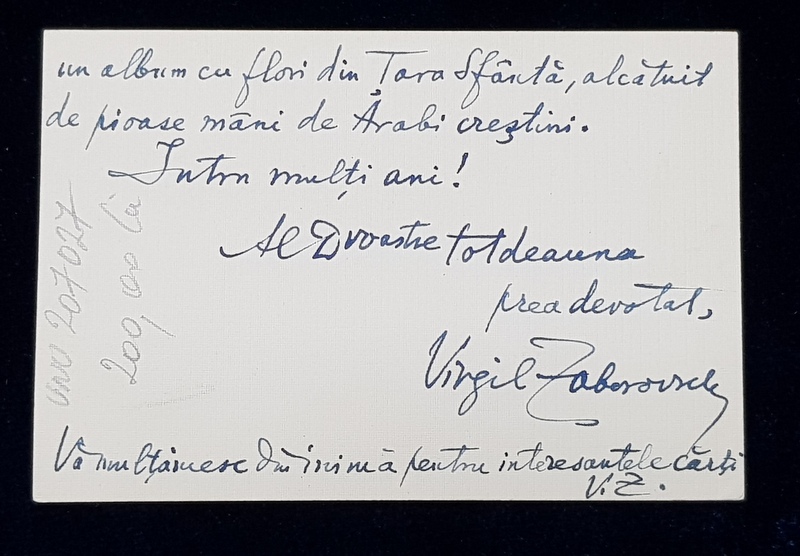 un album cu flori din Țara Sfântă, alcătuit
de pioase mâni de Arabi creştini.
Întru mulți ani!
Al Dvoastre totdeauna
prea devotat,
Virgil Zaborovschi
Vă mulțămesc din inimă pentru interesantele cărți
V. Z.
207027
200,000 lei